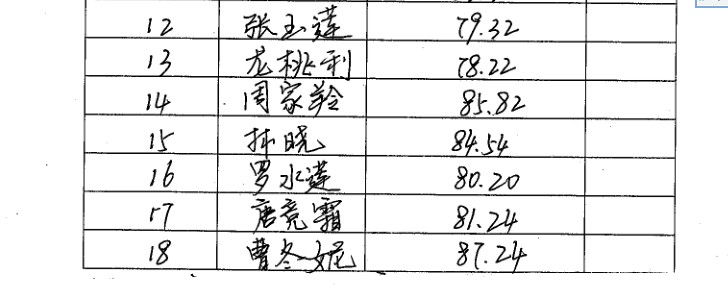 12 张玉莲 79.32
13 龙桃利 78.22
14 周家羚 85.82
15 林晓 84.54
16 罗水莲 80.20
17 唐竟霜 81.24
18 曹冬妮 87.24